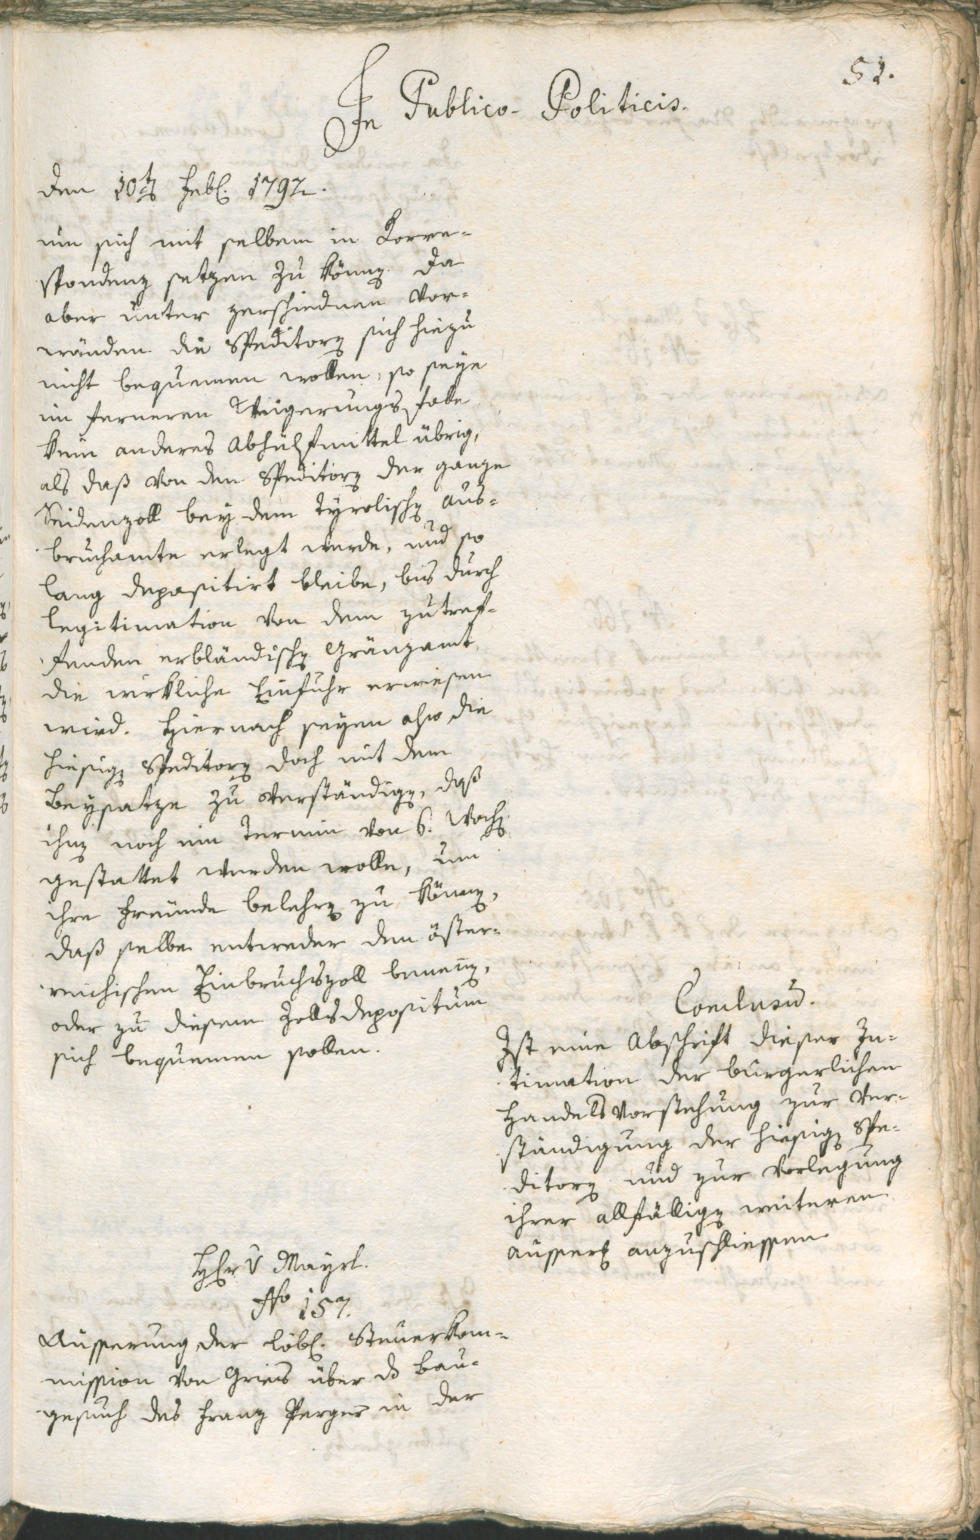 52.
In Publico-Politicis.
den 10t Febl. 1792.
um sich mit selbem in Korre-
spondenz setzen zu könn. Da
aber unter verschiednen Vor-
wänden die Speditorn sich hiezu
nicht bequemen wollen, so seye
im ferneren Weigerungsfalle
kein anderes Abhülfmittel übrig,
als daß von den Speditorn der ganze
Seidenzoll bey dem Tyrolischn Aus-
bruchamte erlegt werde, und so
lang depositirt bleibe, bis durch
Legitimation von dem zutref-
fenden erbländischn Gränzamt
die wirkliche Einfuhr erwiesen
wird. Hiernach seyen also die
hiesign Speditorn doch mit dem
Beysatze zu verständign, daß
ihn noch ein Termin von 6. Woch
gestattet werden wolle, um
ihre Freunde belehrn zu könn,
daß selbe entweder den öster-
reichischen Einbruchszoll benenn,
oder zu diesem Zollsdepositum
sich bequemen sollen.
Conclusū.
Ist eine Abschrift dieser In-
timation der bürgerlichen
Handelsvorstehung zur Ver-
ständigung der hiesign Spe-
ditorn und zur Vorlegung
ihrer allfällign weiteren
Äusserg anzuschliessen
H: v Mayrl.
No 157.
Äusserung der löbl. Steuerkom-
mission von Gries über ds Bau-
gesuch des Franz Perger in der